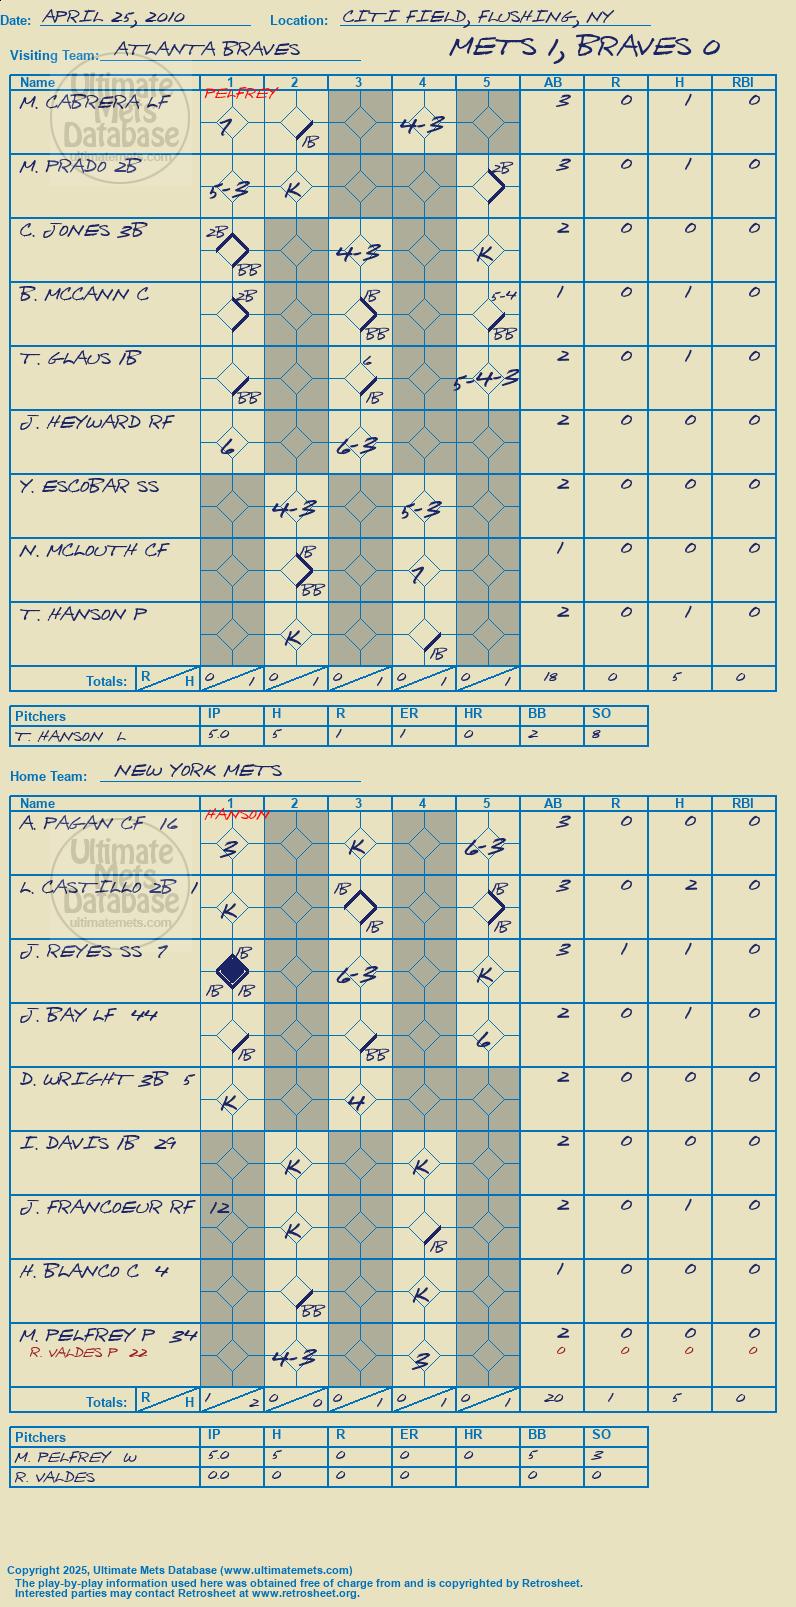 Date: APRIL 25, 2010 Location: CITI FIELD, FLUSHING, NY
Visiting Team: ATLANTA BRAVES METS 1, BRAVES 0
Name 1 2 3 4 5 AB R H RBI
PELFREY
Ultimate Mets Database
ultimatemets.com
M. CABRERA LF 7 1B 4-3 3 0 1 0
M. PRADO 2B 5-3 K 2B 3 0 1 0
C. JONES 3B 2B BB 4-3 K 2 0 0 0
B. MCCANN C 2B 1B BB 5-4 BB 1 0 1 0
T. GLAUS 1B BB 6 1B 5-4-3 2 0 1 0
J. HEYWARD RF 6 6-3 2 0 0 0
Y. ESCOBAR SS 4-3 5-3 2 0 0 0
N. MCLOUTH CF 1B BB 7 1 0 0 0
T. HANSON P K 1B 2 0 1 0
Totals: R H 0 1 0 1 0 1 0 1 0 1 18 0 5 0
Pitchers IP H R ER HR BB SO
T. HANSON L 5.0 5 1 1 0 2 8
Home Team: NEW YORK METS
Name 1 2 3 4 5 AB R H RBI
HANSON
Ultimate Mets Database
ultimatemets.com
A. PAGAN CF 16 3 K 6-3 3 0 0 0
L. CASTILLO 2B 1 K 1B 1B 1B 1B 3 0 2 0
J. REYES SS 7 1B 1B 1B 6-3 K 3 1 1 0
J. BAY LF 44 1B BB 6 2 0 1 0
D. WRIGHT 3B 5 K 4 2 0 0 0
I. DAVIS 1B 29 K K 2 0 0 0
J. FRANCOEUR RF 12 K 1B 2 0 1 0
H. BLANCO C 4 BB K 1 0 0 0
M. PELFREY P 34 4-3 3 2 0 0 0
R. VALDES P 22 0 0 0 0
Totals: R H 1 2 0 0 0 1 0 1 0 1 20 1 5 0
Pitchers IP H R ER HR BB SO
M. PELFREY W 5.0 5 0 0 0 5 3
R. VALDES 0.0 0 0 0 0 0
Copyright 2025, Ultimate Mets Database (www.ultimatemets.com)
The play-by-play information used here was obtained free of charge from and is copyrighted by Retrosheet.
Interested parties may contact Retrosheet at www.retrosheet.org.